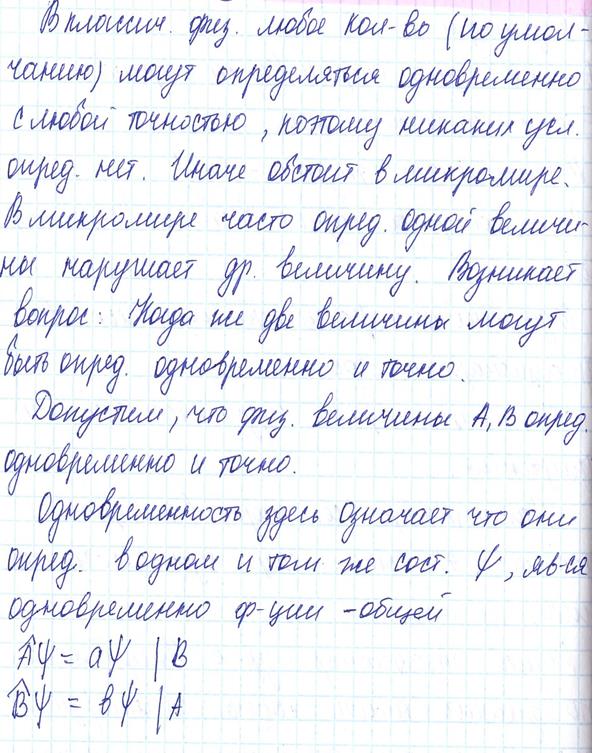 В классич. физ. любое кол-во (по умол-
чанию) могут определяться одновременно
с любой точностью, поэтому никаких усл.
опред. нет. Иначе обстоит в микромире.
В микромире часто опред. одной величи-
ны нарушает др. величину. Возникает
вопрос: Когда же две величины могут
быть опред. одновременно и точно.
Допустим, что физ. величины А, В опред.
одновременно и точно.
Одновременность здесь означает что они
опред. в одном и том же сост. ψ, яв-ся
одновременно ф-ции -общей
Âψ = aψ | B
B̂ψ = вψ | A